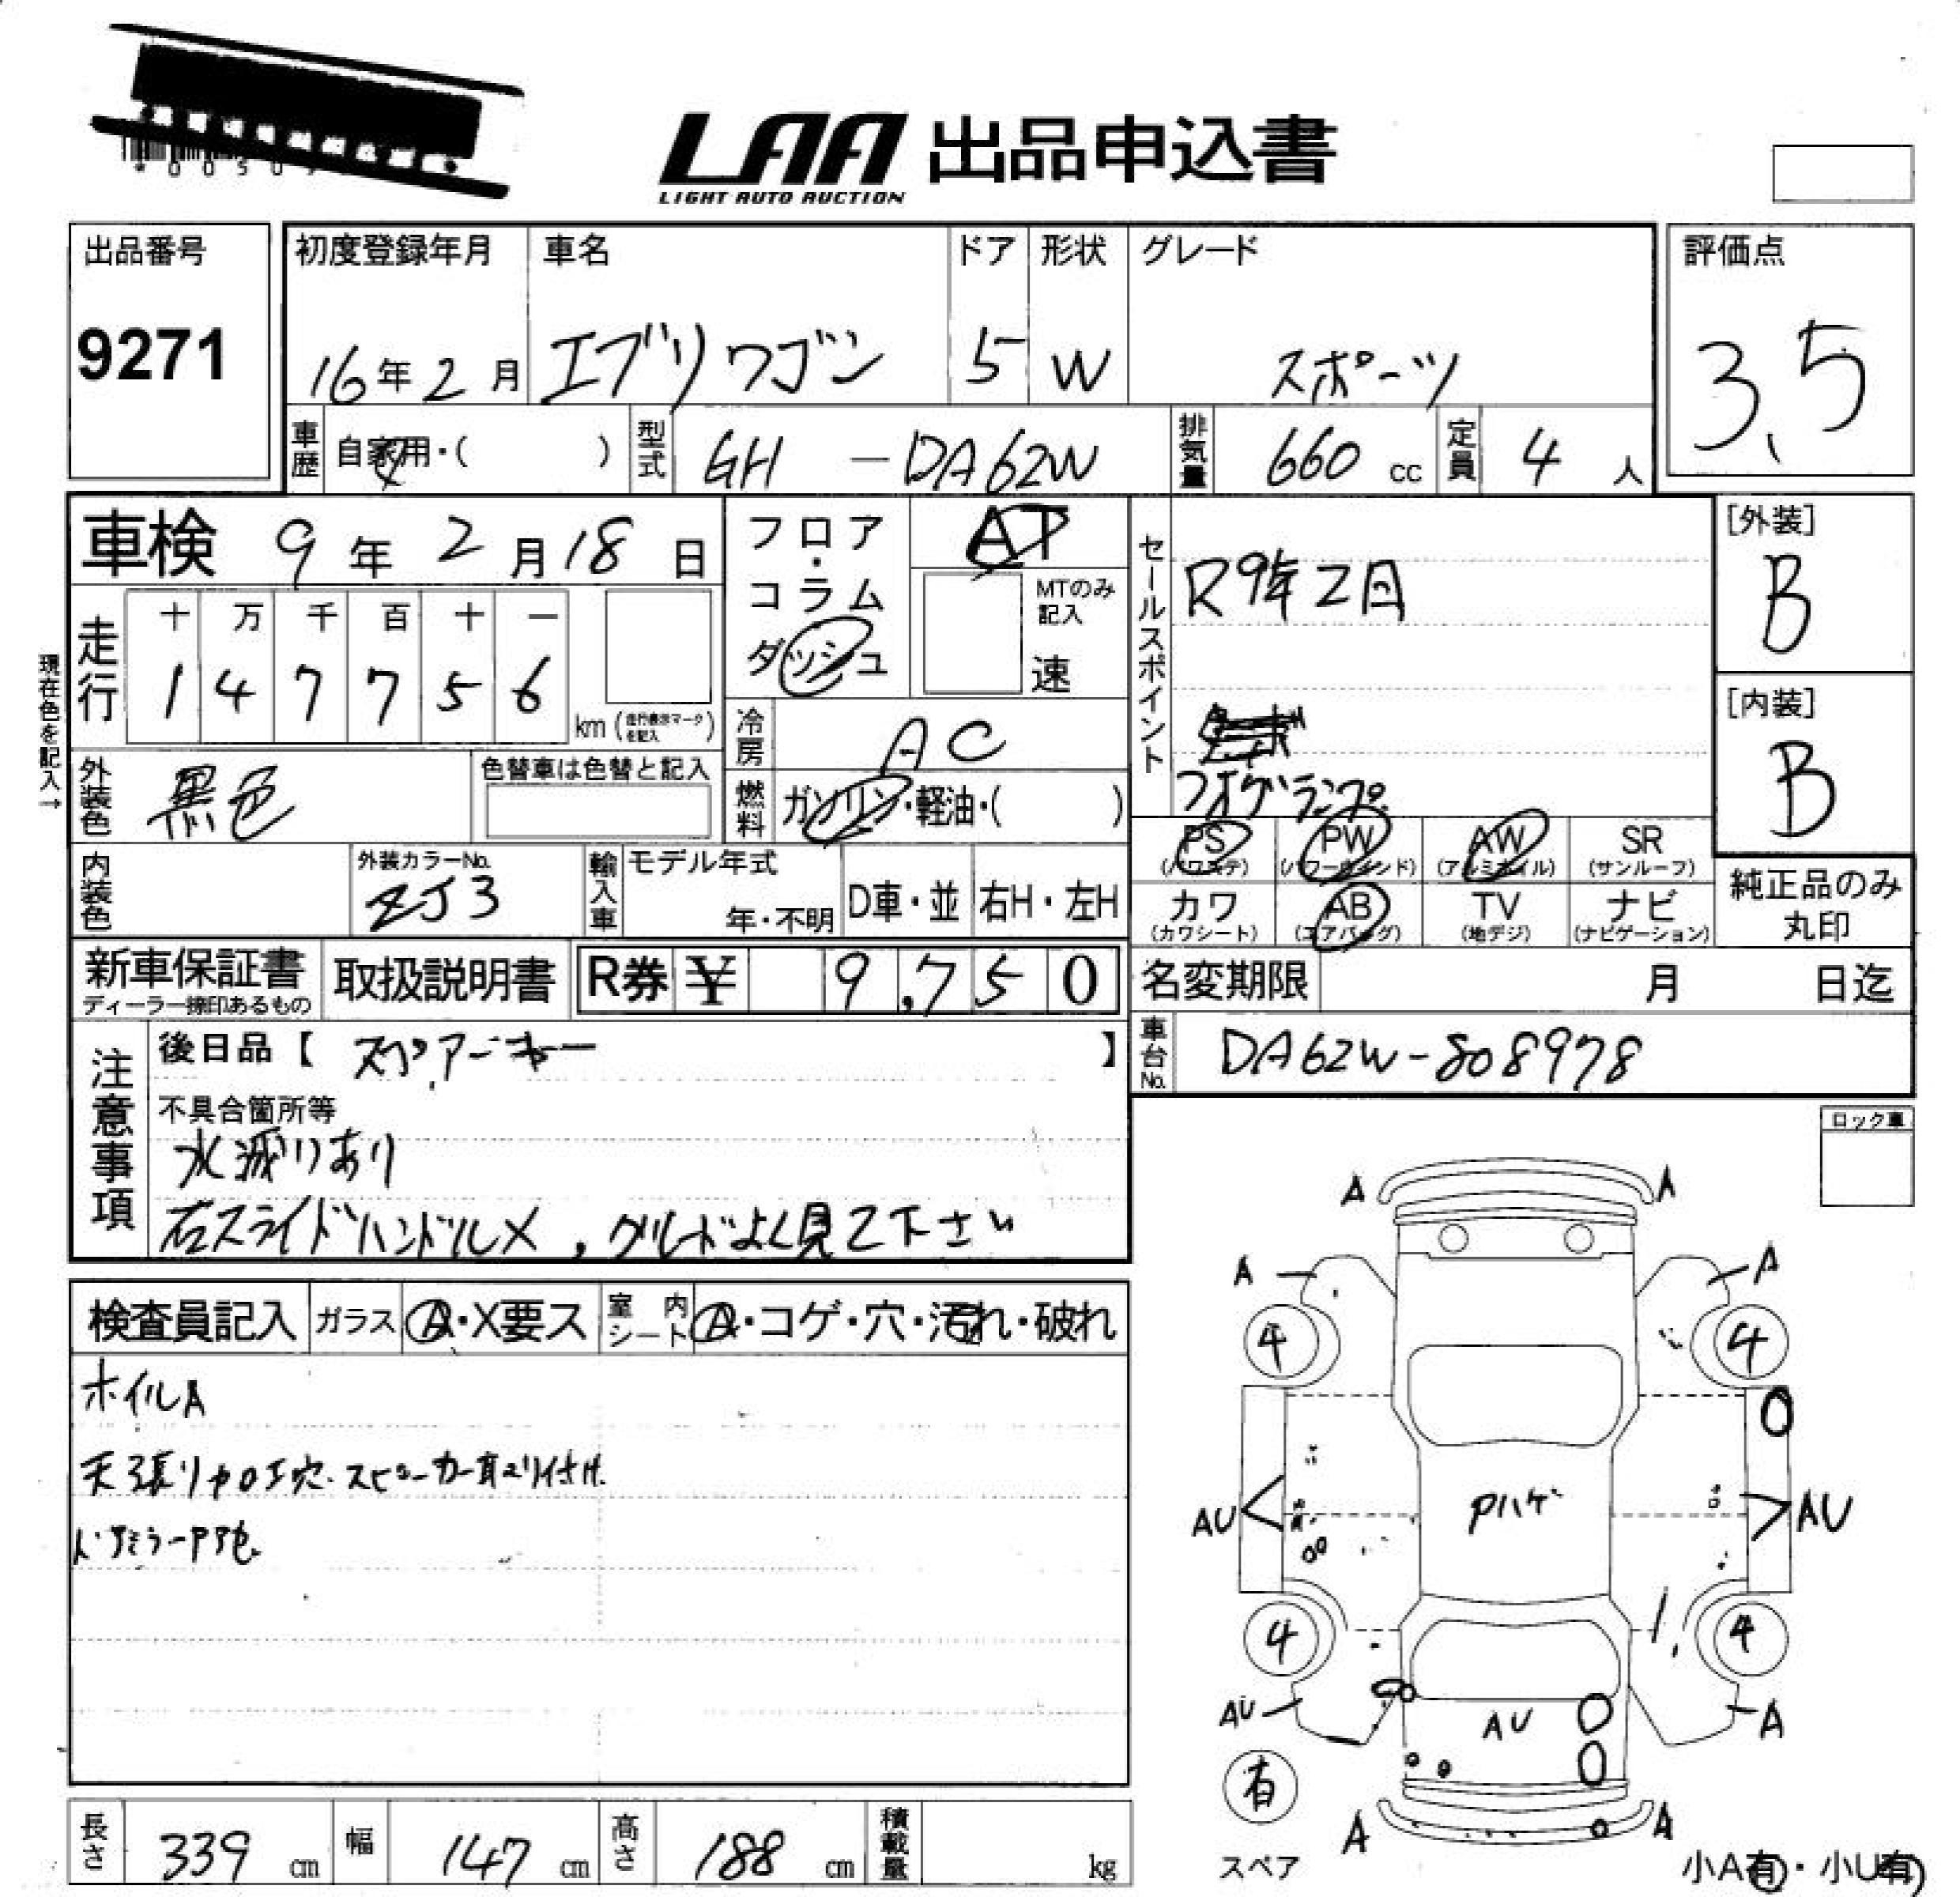 LAA 出品申込書
LIGHT AUTO AUCTION
出品番号
9271
初度登録年月 車名 ドア 形状 グレード
16年2月 エブリワゴン 5 W スポーツ
評価点
3.5
車歴 自家用・( ) 型式 GH -DA62W 排気量 660 cc 定員 4 人
車検 9年 2月18日
フロア・コラム ダッシュ
AT
MTのみ記入
速
セールスポイント
R9年2月
フォグランプ
[外装]
B
[内装]
B
現在色を記入→
走行 十 万 千 百 十 一
1 4 7 7 5 6 km (走行表示マークを記入)
冷房 AC
外装色 黒色 色替車は色替と記入
燃料 ガソリン・軽油・( )
PS (パワステ) PW (パワーウインド) AW (アルミホイル) SR (サンルーフ)
カワ (カワシート) AB (エアバッグ) TV (地デジ) ナビ (ナビゲーション)
純正品のみ丸印
内装色 外装カラーNo. ZJ3 輸入車 モデル年式 年・不明 D車・並 右H・左H
新車保証書 ディーラー捺印あるもの 取扱説明書 R券 ¥ 9,750
名変期限 月 日迄
車台No. DA62W-808978
注意事項
後日品【 スペアーキー 】
不具合箇所等
水減りあり
右スライドハンドルX, グレードよく見て下さい
ロック車
検査員記入 ガラス A・X要ス 室内シート A・コゲ・穴・汚れ・破れ
ホイルA
天張り加工穴.スピーカー取り付け.
A A
A A
4 4
Pハゲ
AU AU
4 4
AU AU A
有
スペア
A A
小A有・小U有
長さ 339 cm 幅 147 cm 高さ 188 cm 積載量 kg